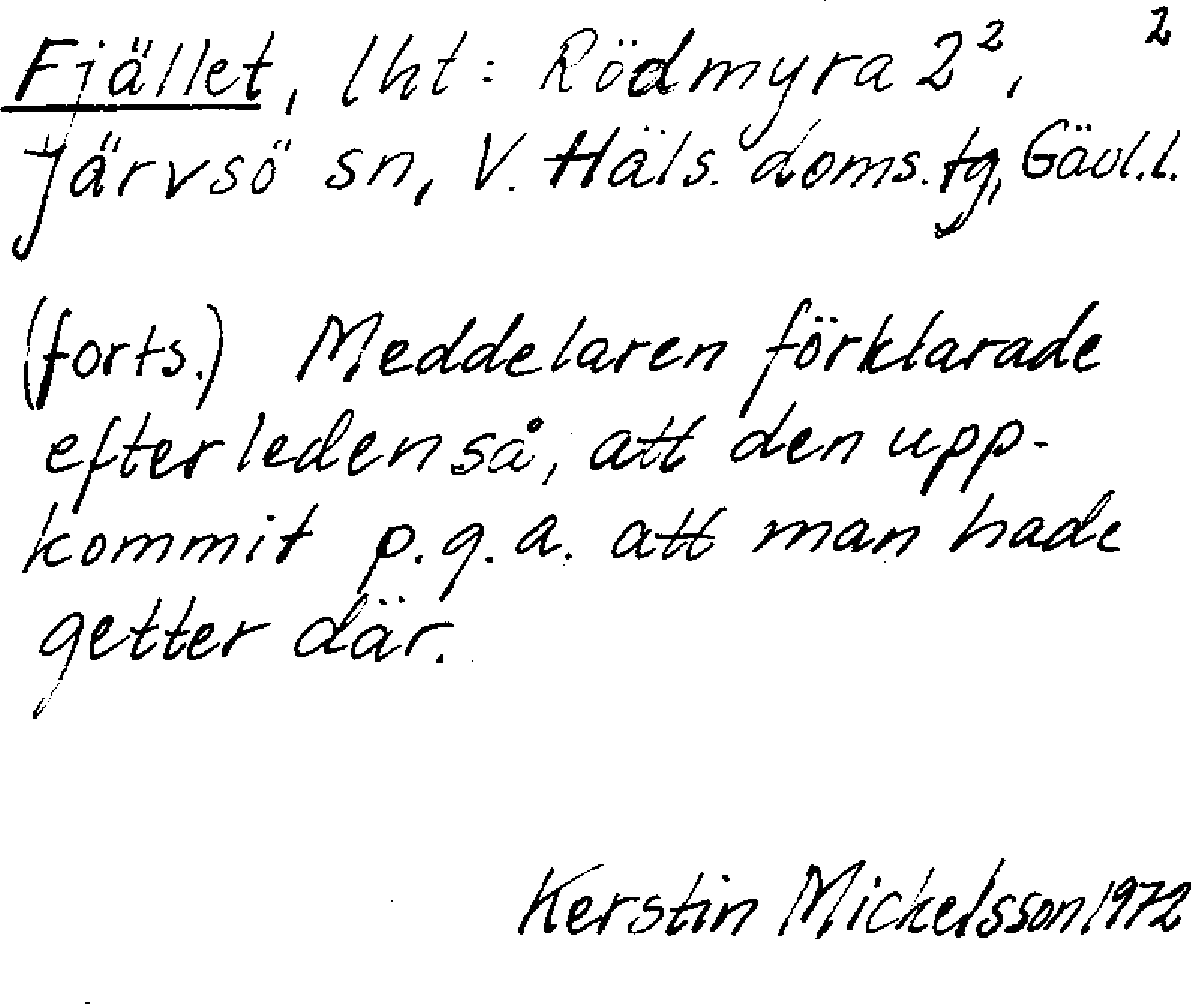 Fjället, lht: Rödmyra 2², 2
Järvsö sn, V. Häls. doms. tg, Gävl. l.
(forts.) Meddelaren förklarade
efterleden så, att den upp-
kommit p.g.a. att man hade
getter där.
Kerstin Mickelsson 1972